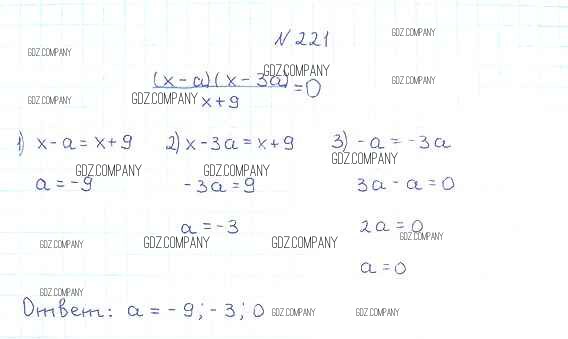 N 221
GDZ.COMPANY
GDZ.COMPANY
(x-a)(x-3a)/x+9 = 0
GDZ.COMPANY
GDZ.COMPANY
GDZ.COMPANY GDZ.COMPANY
1) x-a=x+9 2) x-3a=x+9 3) -a=-3a
GDZ.COMPANY
GDZ.COMPANY GDZ.COMPANY
a=-9 -3a=9 3a-a=0
a=-3 2a=0
GDZ.COMPANY GDZ.COMPANY GDZ.COMPANY GDZ.COMPANY
a=0
GDZ.COMPANY
Ответ: a=-9; -3; 0
GDZ.COMPANY GDZ.COMPANY